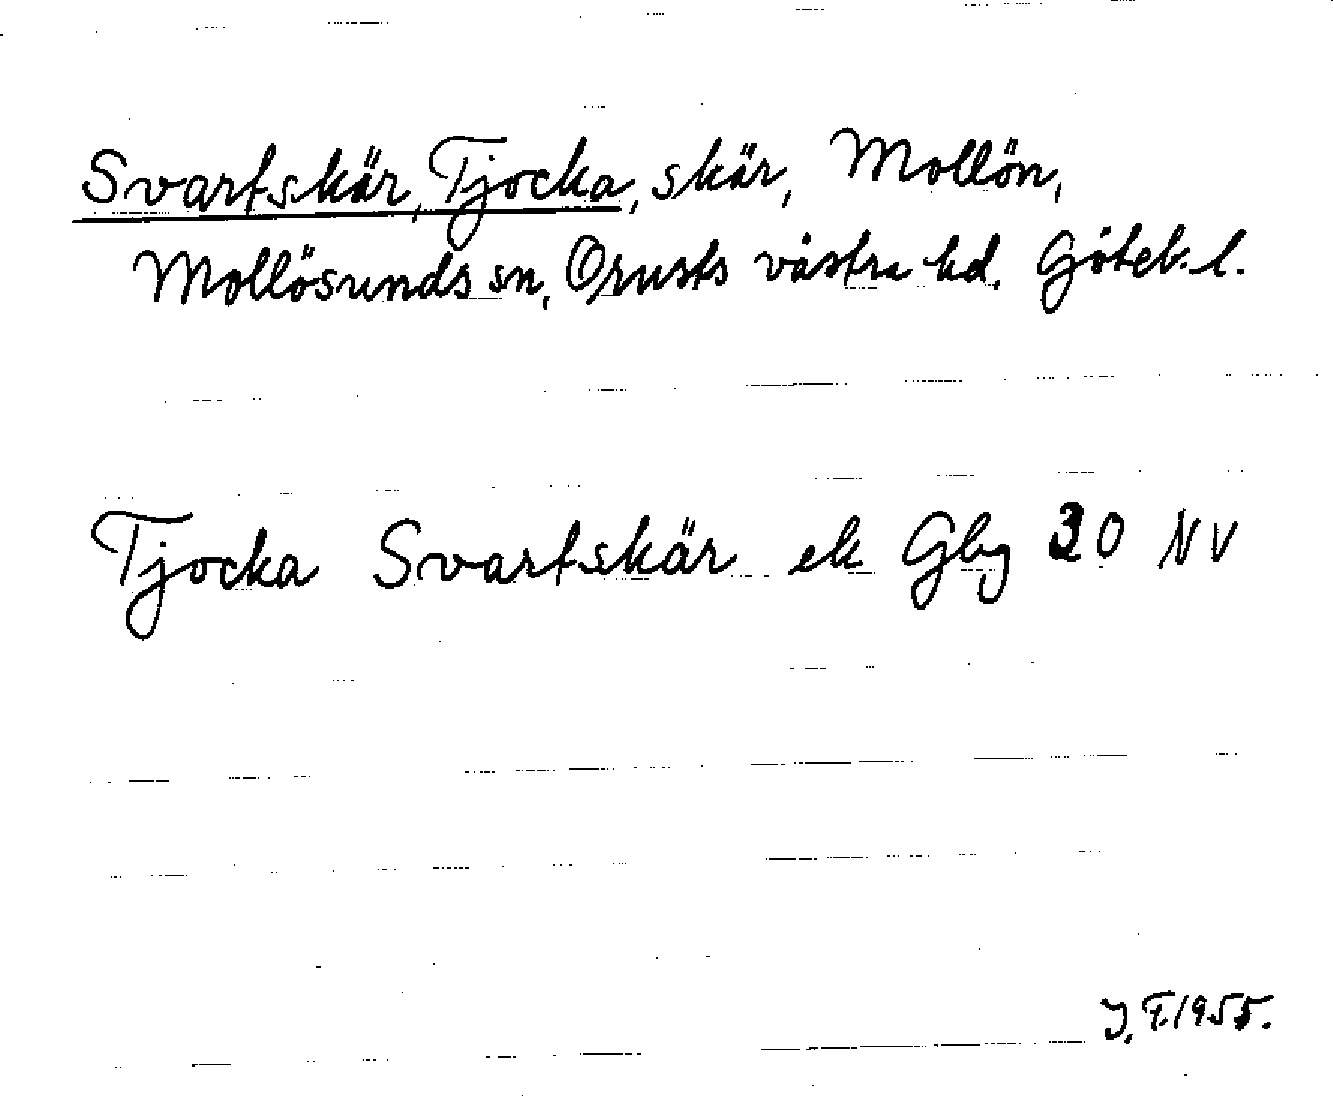 Svartskär, Tjocka, skär, Mollön,
Mollösunds sn, Orusts västra hd. Göteb. l.
Tjocka Svartskär ek Gbg 30 NV
J. F. 1955.